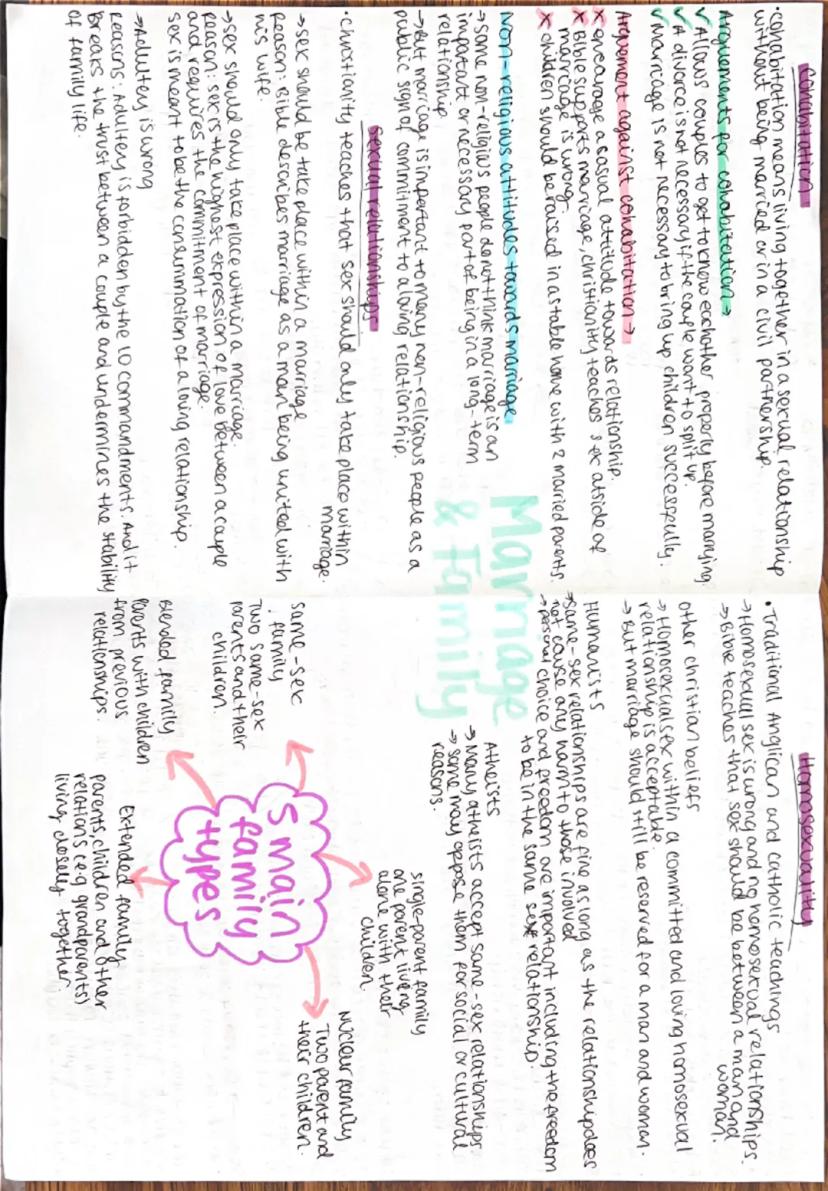 Cohabitation
•cohabitation means living together in a sexual relationship
without being married or in a civil partnership.
Arguements for cohabitation→
✓ Allows couples to get to know eachother properly before marrying.
✓ A divorce is not necessary if the couple want to split up.
✓ Marriage is not necessary to bring up children successfully.
Arguement against cohabitation→
x encourage a casual attitude towards relationship.
x Bible supports marriage, christianity teaches sex outside of
marriage is wrong.
x children should be raised in a stable home with 2 married parents.
Non-religious attitudes towards marriage
→some non-religious people do not think marriage is an
important or necessary part of being in a long-term
relationship
→But marriage is important to many non-religious people as a
public sign of commitment to a loving relationship.
Sexual relationships
•christianity teaches that sex should only take place within
marriage.
→sex should be take place within a marriage
reason: Bible describes marriage as a man being united with
his wife.
→sex should only take place within a marriage.
reason: sex is the highest expression of love between a couple
and requires the commitment of marriage.
sex is meant to be the consummation of a loving relationship.
→Adultery is wrong
Reasons: Adultery is forbidden by the 10 commandments. And it
breaks the trust between a couple and undermines the stability
of family life.
Marriage
& Family
Homosexuality
•Traditional Anglican and catholic teachings
→Homosexual sex is wrong and no homosexual relationships.
→Bible teaches that sex should be between a man and
woman.
other christian beliefs
→Homosexual sex within a committed and loving homosexual
relationship is acceptable.
→But marriage should still be reserved for a man and woman.
Humanists
→Same-sex relationships are fine as long as the relationship does
not cause any harm to those involved
→personal choice and freedom are important including the freedom
to be in the same sex relationship.
Atheists
→Many atheists accept same-sex relationships.
→some may oppose them for social or cultural
reasons.
5 main
family
types
single-parent family
one parent living
alone with their
children
Nuclear family
Two parent and
their children.
same-sex
family
Two same-sex
parents and their
children.
Blended family
Parents with children
from previous
relationships.
Extended family
parents, children and other
relations (e.g grandparents)
living closely together